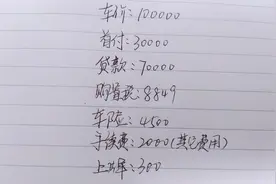 车价：100000
首付：30000
贷款：70000
购置税：8849
车险：4500
手续费：2000（其它费用）
上牌：300